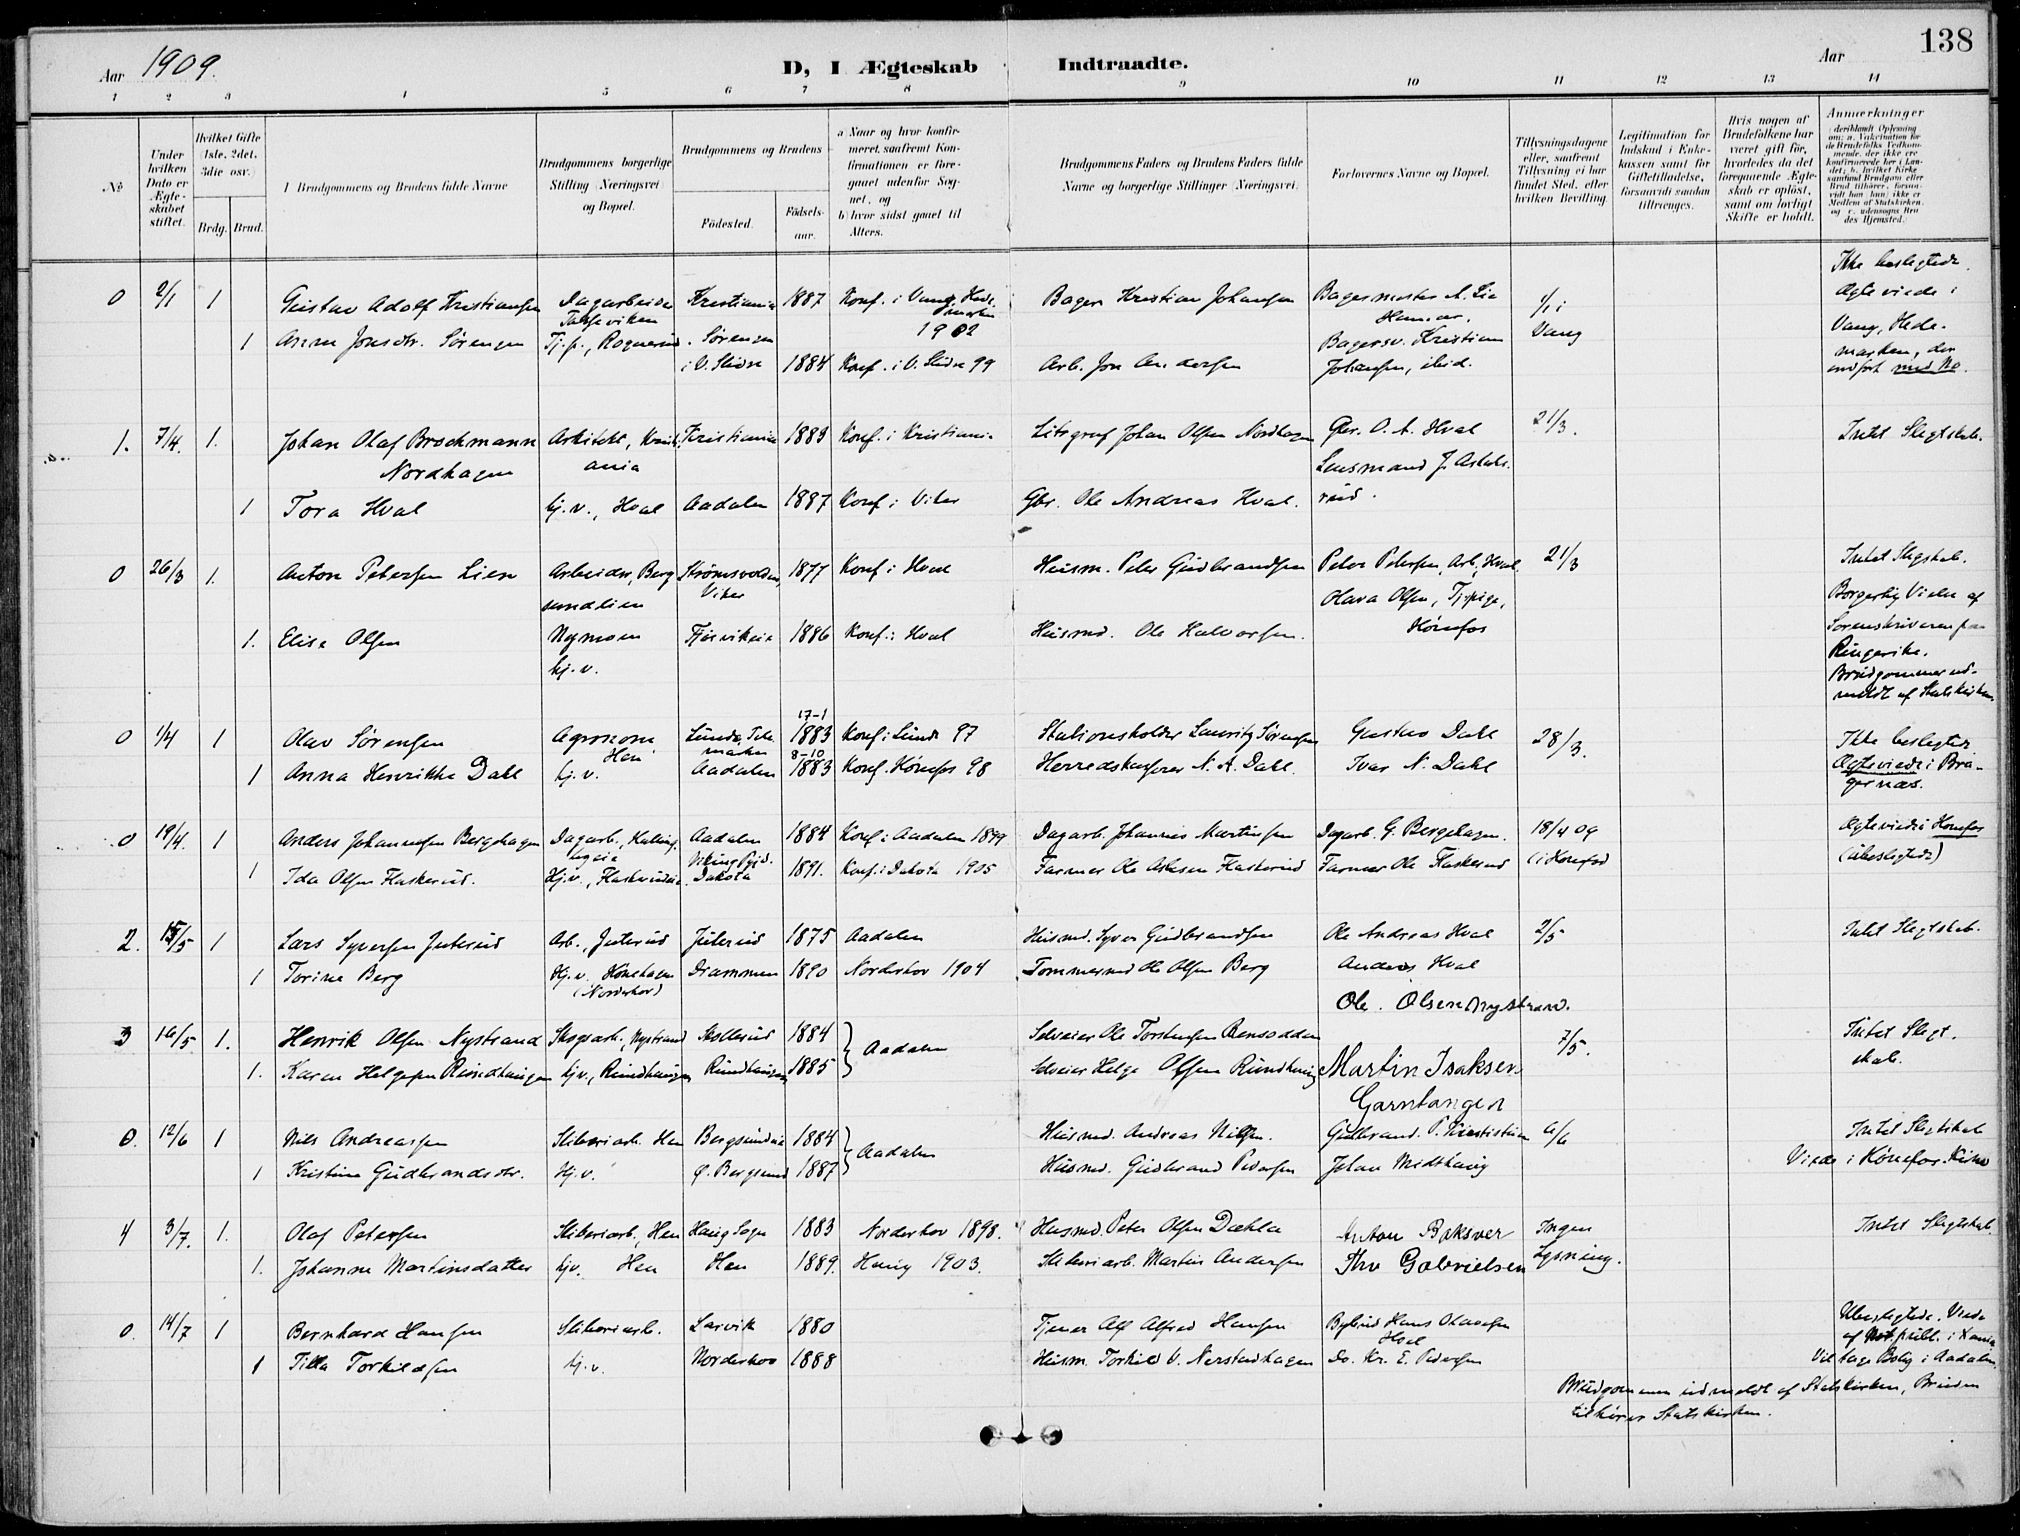 138
Aar 1909.
D, I Ægteskab Indtraadte.
Aar
1 2 3 4 5 6 7 8 9 10 11 12 13 14
No
Under hvilken Dato er Ægteskabet stiftet.
Hvilket Gifte (1ste, 2det, 3die osv.)
Brdg. Brud.
Brudgommens og Brudens fulde Navne
Brudgommens borgerlige Stilling (Næringsvei) og Bopæl.
Brudgommens og Brudens
Fødested.
Fødsels-aar.
a) Naar og hvor konfirmeret, saafremt Konfirmationen er foregaaet udenfor Sognet, og
b) hvor sidst gaaet til Alters.
Brudgommens Faders og Brudens Faders fulde Navne og borgerlige Stillinger (Næringsvei)
Forlovernes Navne og Bopæl.
Tillysningsdagene eller, saafremt Tillysning ei har fundet Sted, efter hvilken Bevilling.
Legitimation for Indskud i Enkekassen samt for Giftetilladelse, forsaavidt saadan tiltrænges.
Hvis nogen af Brudefolkene har været gift før, hvorledes da det foregaaende Ægteskab er opløst, samt om lovligt Skifte er holdt.
Anmærkninger
0 2/1 1 Gustav Adolf Kristiansen Dagarbeider Kristiania 1887 Konf. i Vang, Hedemarken 1902 Bager Kristian Johansen Bagermester A. Lie Hamar. 1/1 i Vang Ikke beslegtede. Ægteviede i Vang, Hedemarken, der indført med No.
1 Anne Jonsdr. Sørengen Tj.p., Sørengen i V. Slidre 1884 Konf. i V. Slidre 99 Arb. Jon Andersen Bagersv. Kristian Johansen, ibid.
1. 7/4. 1. Johan Olaf Brochmann Nordhagen Arkitekt, Kristiania Kristiania 1883 Konf. i Kristiania Litograf Johan Olsen Nordhagen Gbr. O. A. Hval 21/3. Intet Slegtskab.
1 Tora Hval hj.v., Hval Aadalen 1887 Konf. i Viker Gbr. Ole Andreas Hval. Lensmand J.
0 26/3 1. Anton Petersen Lien Arbeider, Bergsundlien Strømsodden, Viker 1877 Konf. i Hval Husm. Peter Gudbrandsen Peter Petersen, Arb., Hval. 21/3 Intet Slegtskab.
1. Elise Olsen Nymoen hj.v. 1886 Konf. i Hval Husmd. Ole Halvorsen. Olava Olsen, Tj.pige, Hønefos Borgerlig Vielse af Sorenskriveren paa Ringerike. Brudgommen udmeldt af Statskirken.
0 1/4 1 Olav Sørensen Agronom Hen Lunde, Telemarken 17-1 1883 Konf. i Lunde 97 Stationsholder Lauritz Sørensen Gustav Dahl 28/3. Ikke beslegted.
1 Anna Henrikke Dahl hj.v. Aadalen 8-10 1883 Konf. Hønefos 98 Herredskasserer N. A. Dahl. Ivar N. Dahl Ægteviede i Bragernæs.
0 19/4. 1 Anders Johannesen Bergehagen Dagarb., Aadalen 1884 Konf. i Aadalen 1899 Dagarb. Johannes Martinsen Dagarb. G. Bergehagen. 18/4 09 (i Hønefos) Ægteviede i Hønefos (ubeslegtede)
1 Ida Olsen Flaskerud. Hj.v., Dakota 1891. Konf. i Dakota 1905 Farmer Ole Flaskerud Farmer Ole Flaskerud
2. 15/5 1 Lars Syversen Juterud Arb., Juterud Juterud 1875 Aadalen Husmd. Syver Gudbrandsen Ole Andreas Hval 2/5 Intet Slegtskab.
1 Torine Berg Hj.v. Hønehagen (Norderhov) Drammen 1890 Norderhov 1904 Tømmermd Ole Olsen Berg Anders Hval
Ole. Olsen Nystrand.
3 16/5 1. Henrik Olsen Nystrand Skogsarb., Nystrand Skollerud 1884 Aadalen Selveier Ole Torstensen Bensodden 7/5. Intet Slegtskab.
1. Karen Helgesen Rundhaugen hj.v., Rundhaugen Rundhaugen 1885 Selveier Helge Olsen Rundhaug Martin Isaksen Garntangen
0. 12/6 1 Nils Andreassen Sliberiarb. Hen Bergsundeie 1884 Aadalen Husmd. Andreas Nilsen. Gulbrand P. 6/6 Intet Slegtskab
1 Kristine Gudbrandsdr. Hj.v. Bergsund 1887 Husmd. Gudbrand Pedersen Johan Midthaug Viede i Hønefos Kirke
4 3/7. 1. Olaf Petersen Sliberiarb., Hen Haug Sogn 1883 Norderhov 1898. Husmd. Peter Olsen Dæhla Anton Baksver Ingen Lysning. Intet Slegtskab.
1. Johanne Martinsdatter hjv. Hen Hen 1889. Haug 1903. Sliberiarb. Martin Andersen Thv Gabrielsen
0. 14/7 1 Bernhard Hansen Sliberiarb. Larvik 1880 Tjener Alf Alfred Hansen Bybud Hans Olausen Ubeslegtede. Viede af Not. publ. i Kania.
1 Tilla Torkildsen hj.v. Norderhov 1888 Husm. Torkild O. Nerstadhagen Do. Kr. E. Pedersen Vil tage Bolig i Aadalen.
Brudgommen udmeldt af Statskirken, Bruden tilhører Statskirken.